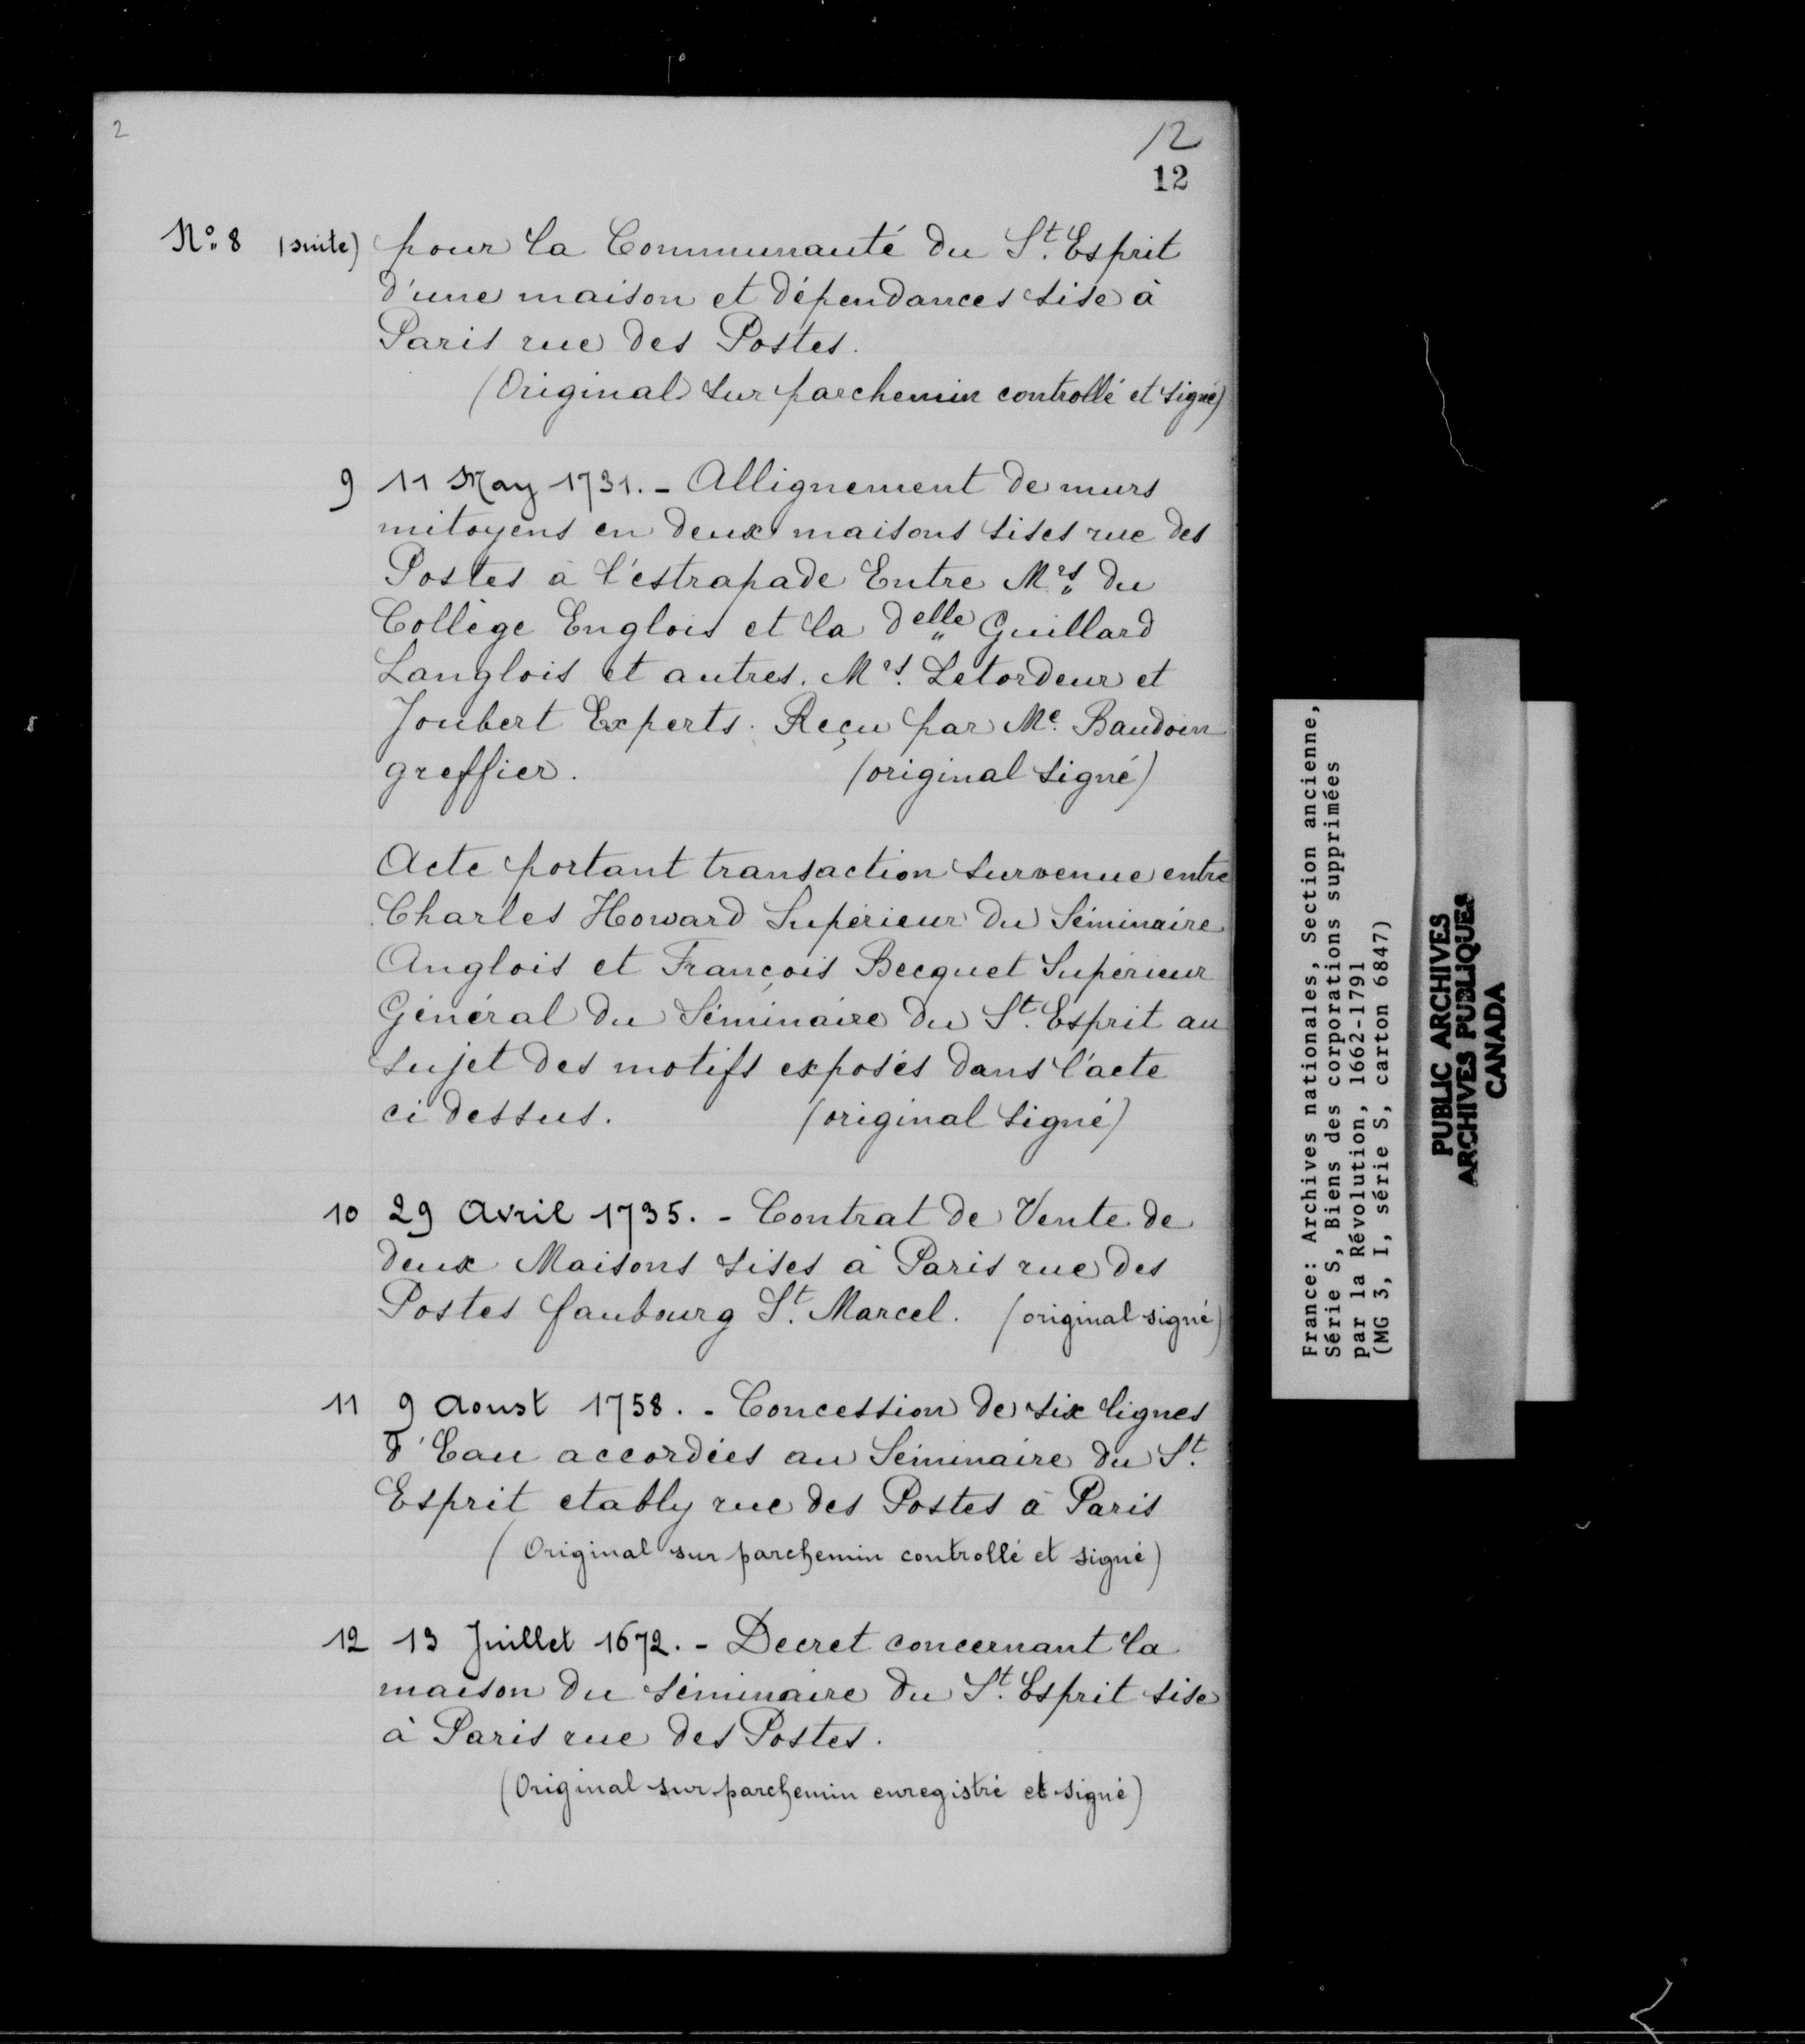 2
12
12
Nº 8 (suite) pour la Communauté du St. Esprit
d'une maison et dépendances sise à
Paris rue des Postes.
(Original sur parchemin controllé et signé)
9 11 May 1731. - Allignement de murs
mitoyens en deux maisons sises rue des
Postes à l'estrapade Entre Mrs. du
Collège Englois et la delle Guillard
Langlois et autres. Mrs. Letordeur et
Joubert Experts. Reçu par Me. Baudoin
greffier. (original signé)
Acte portant transaction survenue entre
Charles Howard Supérieur du Séminaire
Anglois et François Becquet Supérieur
Général du Séminaire du St. Esprit au
sujet des motifs exposés dans l'acte
ci dessus. (original signé)
10 29 Avril 1735. - Contrat de Vente de
deux Maisons sises à Paris rue des
Postes faubourg St. Marcel. (original signé)
11 9 Aoust 1758. - Concession de six lignes
d'Eau accordées au Séminaire du St.
Esprit etably rue des Postes à Paris
(Original sur parchemin controllé et signé)
12 13 Juillet 1672. - Decret concernant la
maison du séminaire du St. Esprit sise
à Paris rue des Postes.
(Original sur parchemin enregistré et signé)
France: Archives nationales, Section ancienne,
Série S, Biens des corporations supprimées
par la Révolution, 1662-1791
(MG 3, I, série S, carton 6847)
PUBLIC ARCHIVES
ARCHIVES PUBLIQUES
CANADA